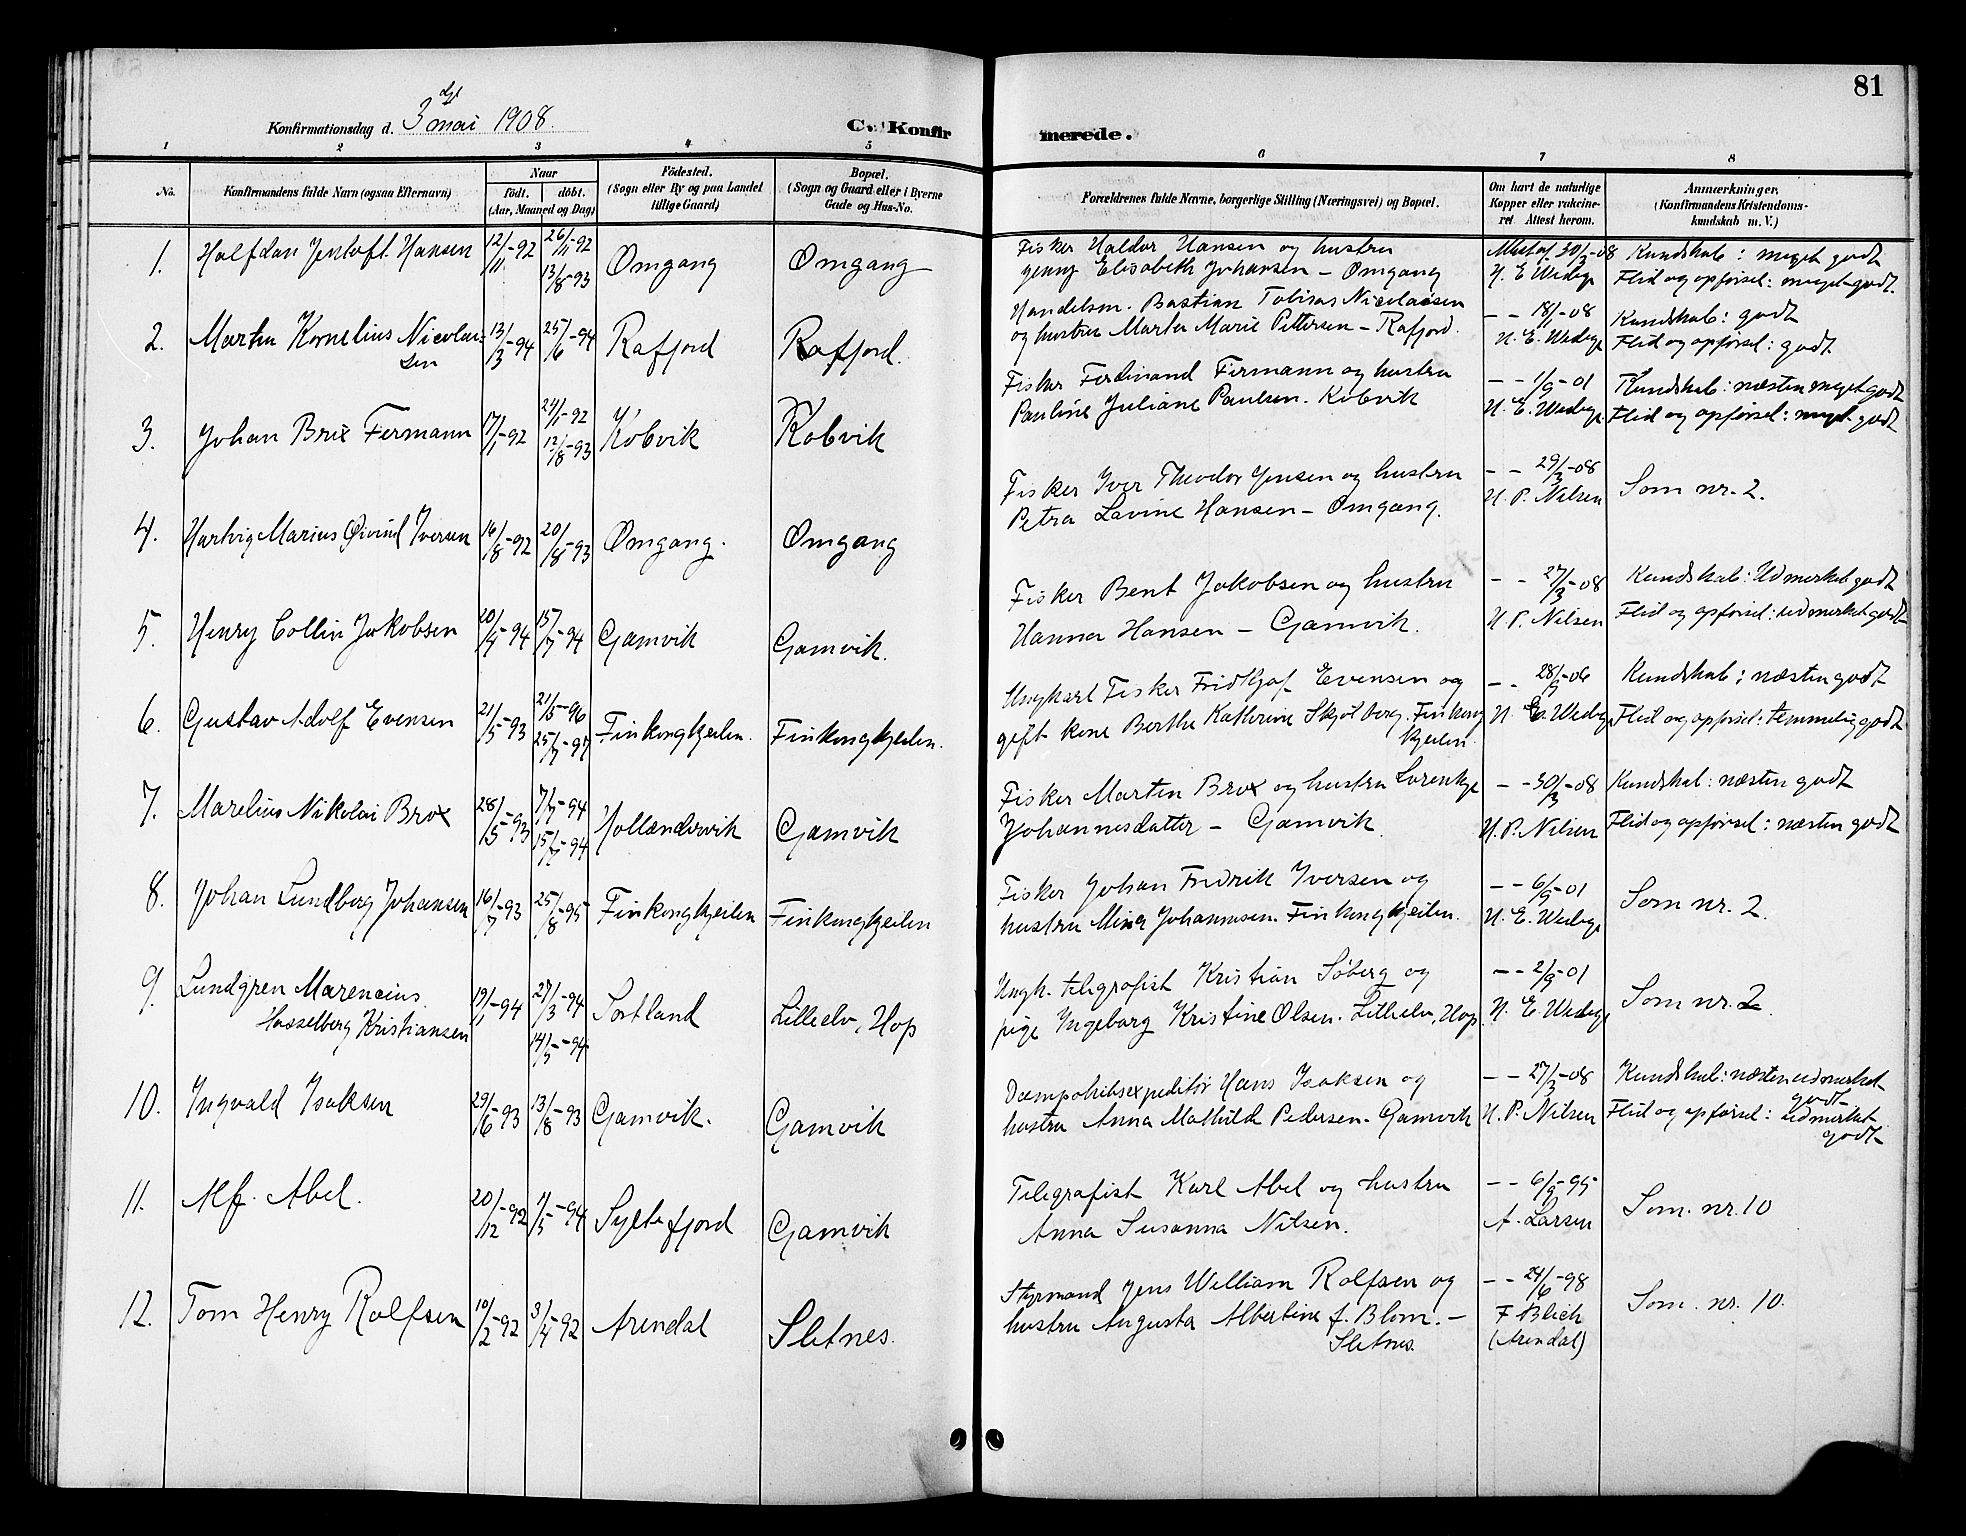 81
Konfirmationsdag d. 3 dje mai 1908.
C. Konfirmerede.
1 2 3 4 5 6 7 8
No.
Konfirmandens fulde Navn (ogsaa Efternavn)
Naar
födt. döbt.
(Aar, Maaned og Dag)
Födested.
(Sogn eller By og paa Landet
tillige Gaard)
Bopæl.
(Sogn og Gaard eller i Byerne
Gade og Hus-No.
Forældrenes fulde Navne, borgerlige Stilling (Næringsvei) og Bopæl.
Om havt de naturlige
Kopper eller vakcine-
ret Attest herom.
Anmærkninger.
(Konfirmandens Kristendoms-
kundskab m. V.)
1. Halfdan Jentoft Hansen 12/11-92 26/11-92 13/8-93 Omgang Omgang
Fisker Haldor Hansen og hustru
Jenny Elisabeth Johansen - Omgang
Attest af 30/3-08
H. E. Wedege
Kundskab: meget godt
Flid og opførsel: meget godt.
2. Martin Kornelius Nicolai-
sen 13/3-94 25/6-94 Rafjord Rafjord.
Handelsm. Bastian Tobias Nicolaisen
og hustru Marta Marie Pettersen - Rafjord.
- - 18/1-08
H. E. Wedege
Kundskab: godt
Flid og opførsel: godt
3. Johan Brix Fermann 17/1-92 24/1-92 12/8-93 Kobvik Kobvik
Fisker Ferdinand Fermann og hustru
Pauline Juliane Paulsen. Kobvik
- - 1/9-01
H. E. Wedege
Kundskab: næsten meget godt
Flid og opførsel: meget godt
4. Hartvig Marius Øivind Iversen 16/8-92 20/8-93 Omgang. Omgang
Fisker Iver Theodor Jensen og hustru
Petra Lavine Hansen - Omgang.
- - 29/3-08
H. P. Nilsen
Som nr. 2.
5. Henry Collin Jakobsen 20/4-94 15/7-94 Gamvik Gamvik.
Fisker Bent Jakobsen og hustru
Hanna Hansen - Gamvik.
- - 27/3-08
H. P. Nilsen
Kundskab: Udmerket godt
Flid og opførsel: udmerket godt
6. Gustav Adolf Evensen 21/5-93 21/5-96 25/7-97 Finkongkjeilen. Finkongkjeilen.
Ungkarl Fisker Fridtjof Evensen og
gift kone Berthe Kathrine Skjølberg. Finkong
kjeilen.
- - 28/9-06
H. E. Wedege
Kundskab: næsten godt
Flid og opførsel: temmelig godt
7. Marelius Nikolai Brox 28/5-93 7/7-94 15/7-94 Hollændervik Gamvik
Fisker Martin Brox og hustru Lorentze
Johannesdatter - Gamvik.
- - 30/3-08
H. P. Nilsen
Kundskab: næsten godt
Flid og opførsel: næsten godt
8. Johan Lundberg Johansen 16/7-93 25/8-95 Finkongkjeilen Finkongkjeilen
Fisker Johan Fredrik Iversen og
hustru Mina Johannesen. Finkongkjeilen.
- - 6/9-01
H. E. Wedege
Som nr. 2.
9. Lundgren Marencius
Hasselberg Kristiansen 19/1-94 27/3-94 14/5-94 Sortland Lilleelv, Hop
Ungk. telegrafist Kristian Søberg og
pige Ingeborg Kristine Olsen. Lilleelv, Hop.
- - 2/9-01
H. E. Wedege
Som nr. 2.
10. Ingvald Isaksen 29/6-93 13/8-93 Gamvik. Gamvik
Dampskibsexpeditør Hans Isaksen og
hustru Anna Mathilde Pedersen - Gamvik
- - 27/3-08
H. P. Nilsen
Kundskab: næsten udmerket
godt
Flid og opførsel: udmerket
godt
11. Alf Abel. 20/12-92 1/5-94 Syltefjord Gamvik
Telegrafist Karl Abel og hustru
Anna Susanna Nilsen.
- - 6/9-95
A. Larsen
Som nr. 10
12. Tom Henry Rolfsen 10/2-92 3/4-92 Arendal Sletnes.
Styrmand Jens William Rolfsen og
hustru Augusta Albertine f. Blom. -
Sletnes.
- - 24/6-98
F Blich
(Arendal)
Som nr. 10.